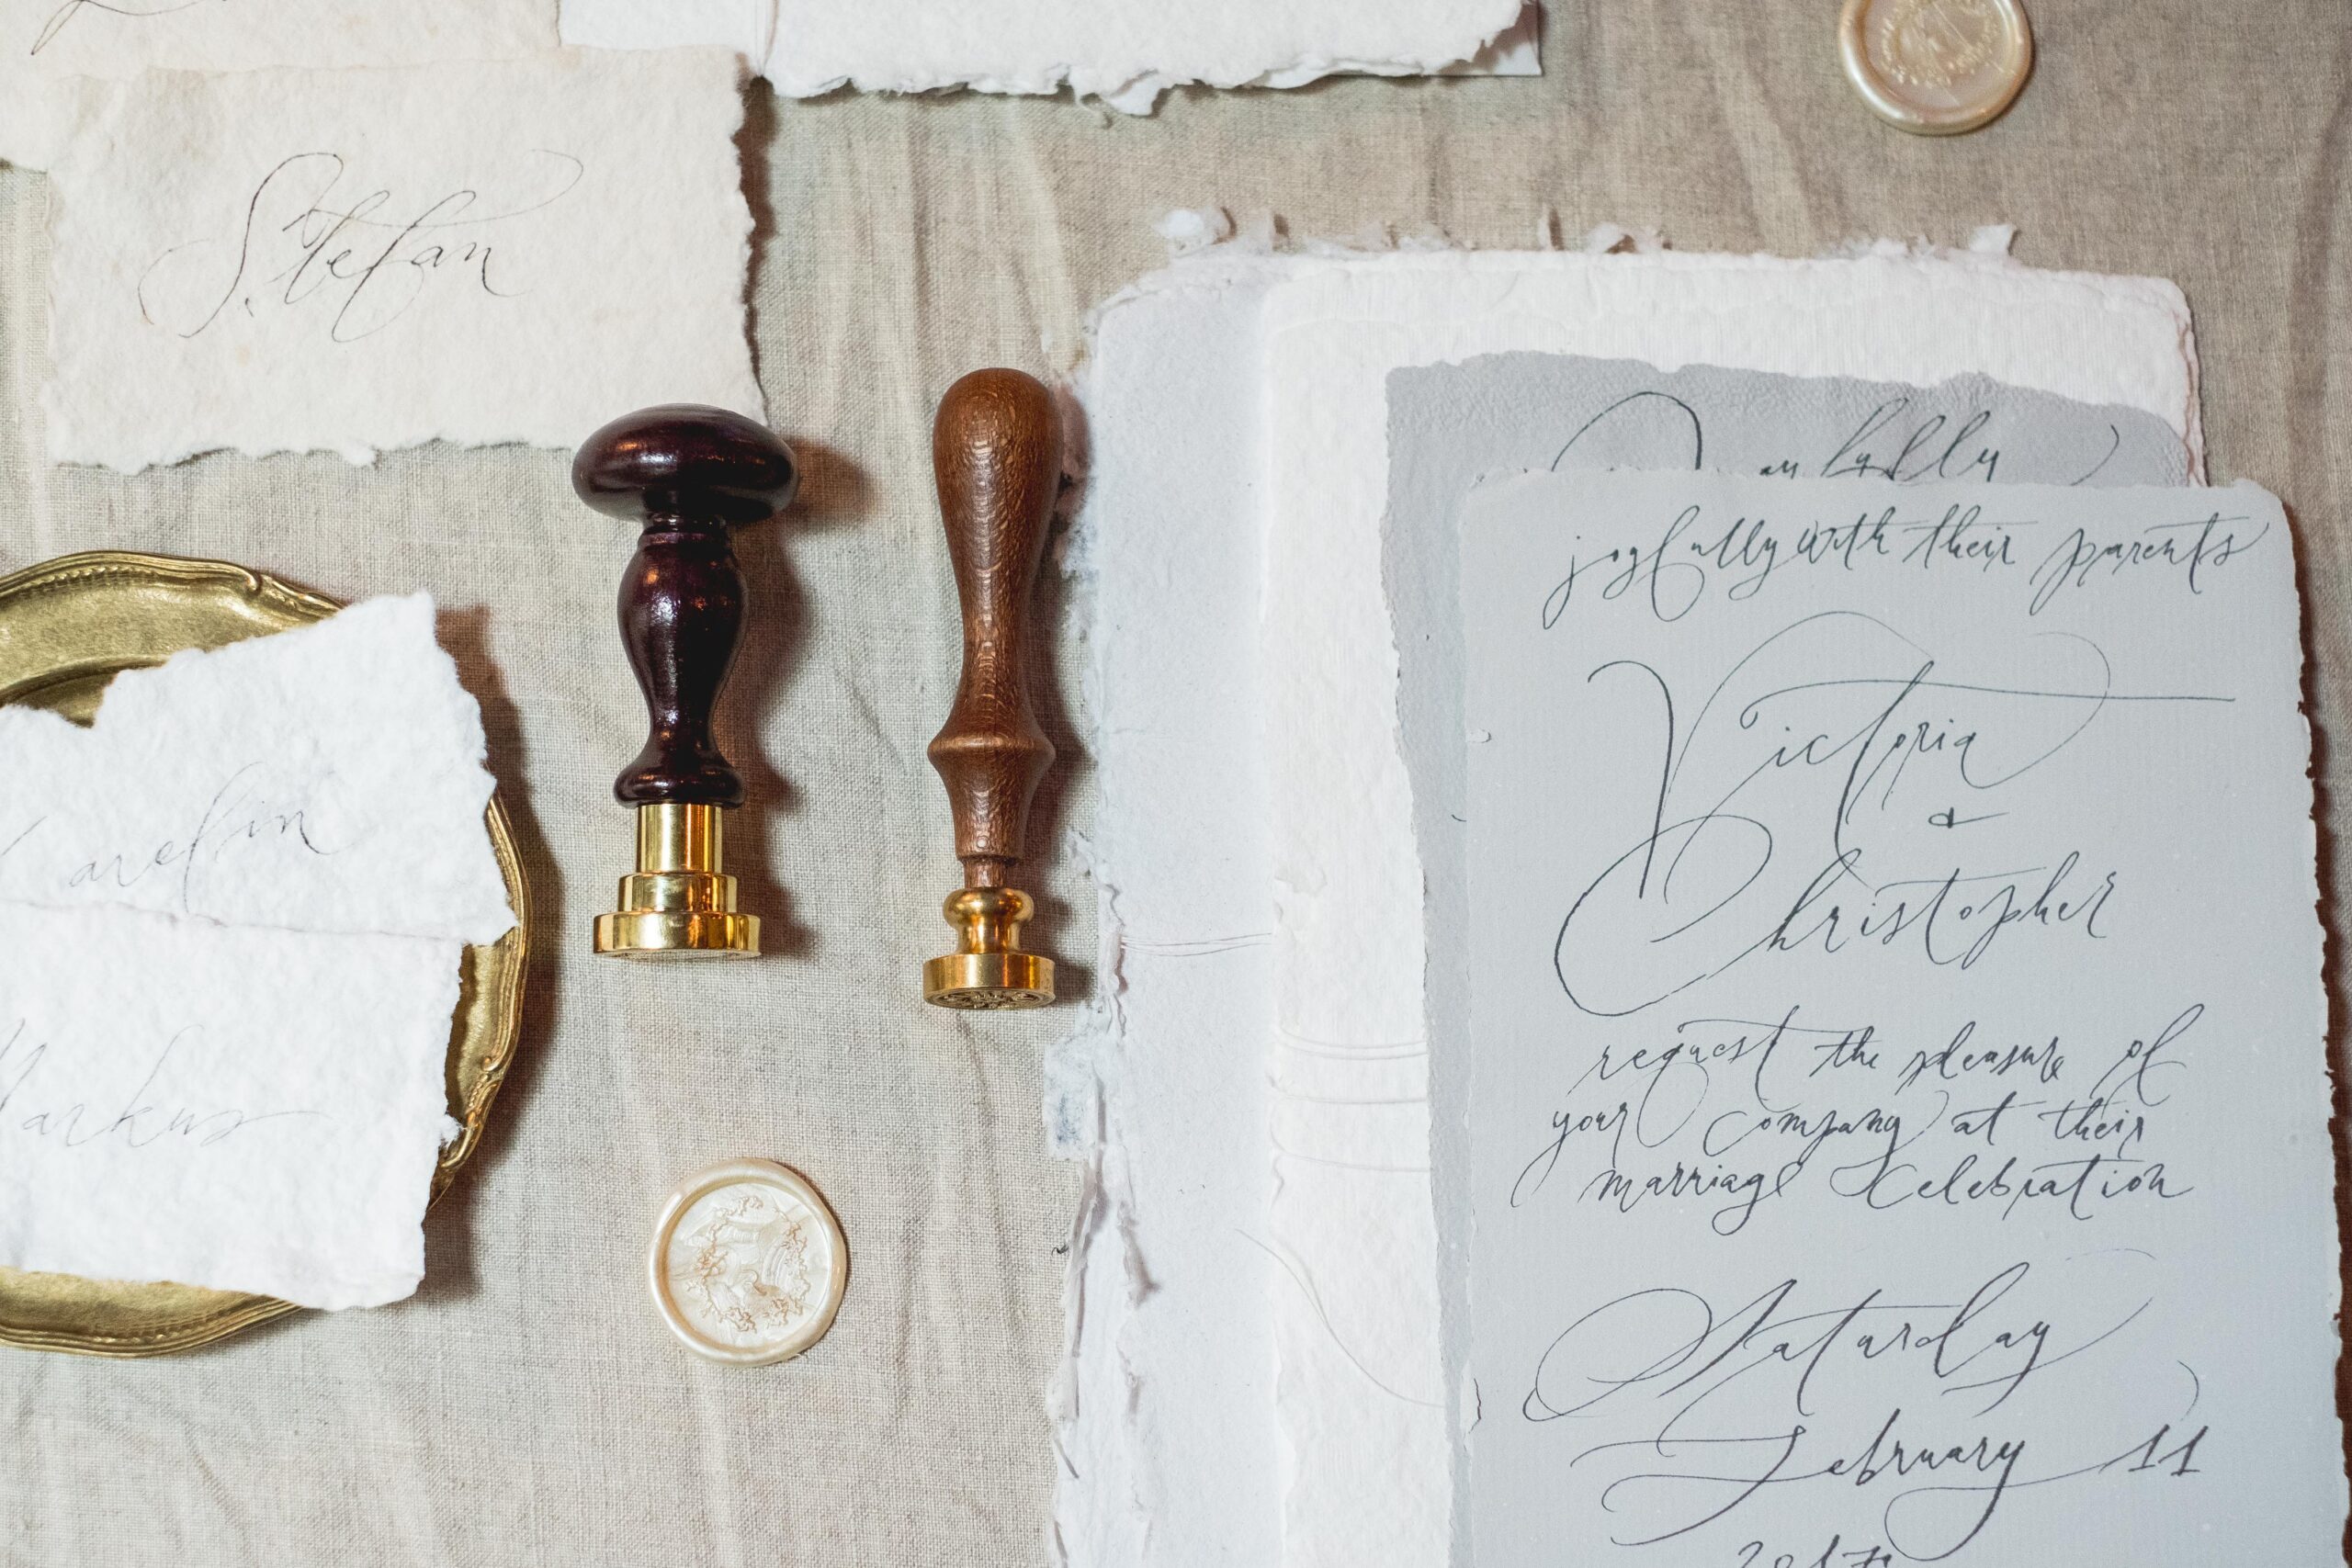 Stefan
joyfully with their parents
Victoria
&
Christopher
request the pleasure of
your company at their
marriage celebration
Saturday
February 11